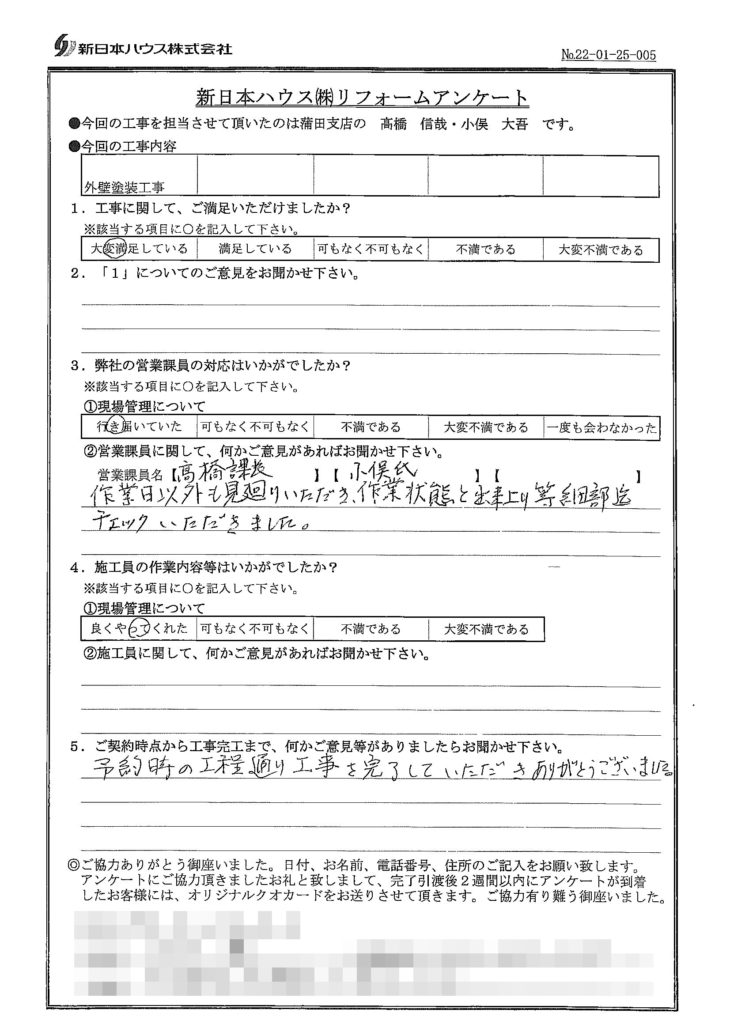 新日本ハウス株式会社
№22-01-25-005
新日本ハウス㈱リフォームアンケート
●今回の工事を担当させて頂いたのは蒲田支店の 高橋 信哉・小俣 大吾 です。
●今回の工事内容
外壁塗装工事
1．工事に関して、ご満足いただけましたか？
※該当する項目に〇を記入して下さい。
大変満足している 満足している 可もなく不可もなく 不満である 大変不満である
2．「1」についてのご意見をお聞かせ下さい。
3．弊社の営業課員の対応はいかがでしたか？
※該当する項目に〇を記入して下さい。
①現場管理について
行き届いていた 可もなく不可もなく 不満である 大変不満である 一度も会わなかった
②営業課員に関して、何かご意見があればお聞かせ下さい。
営業課員名【高橋課長 】【 小俣氏 】【 】
作業日以外も見廻りいただき、作業状態と出来上り等細部迄
チェックいただきました。
4．施工員の作業内容等はいかがでしたか？
※該当する項目に〇を記入して下さい。
①現場管理について
良くやってくれた 可もなく不可もなく 不満である 大変不満である
②施工員に関して、何かご意見があればお聞かせ下さい。
5．ご契約時点から工事完工まで、何かご意見等がありましたらお聞かせ下さい。
予約時の工程通り工事を完了していただきありがとうございました。
◎ご協力ありがとう御座いました。日付、お名前、電話番号、住所のご記入をお願い致します。
アンケートにご協力頂きましたお礼と致しまして、完了引渡後２週間以内にアンケートが到着
したお客様には、オリジナルクオカードをお送りさせて頂きます。ご協力有り難う御座いました。